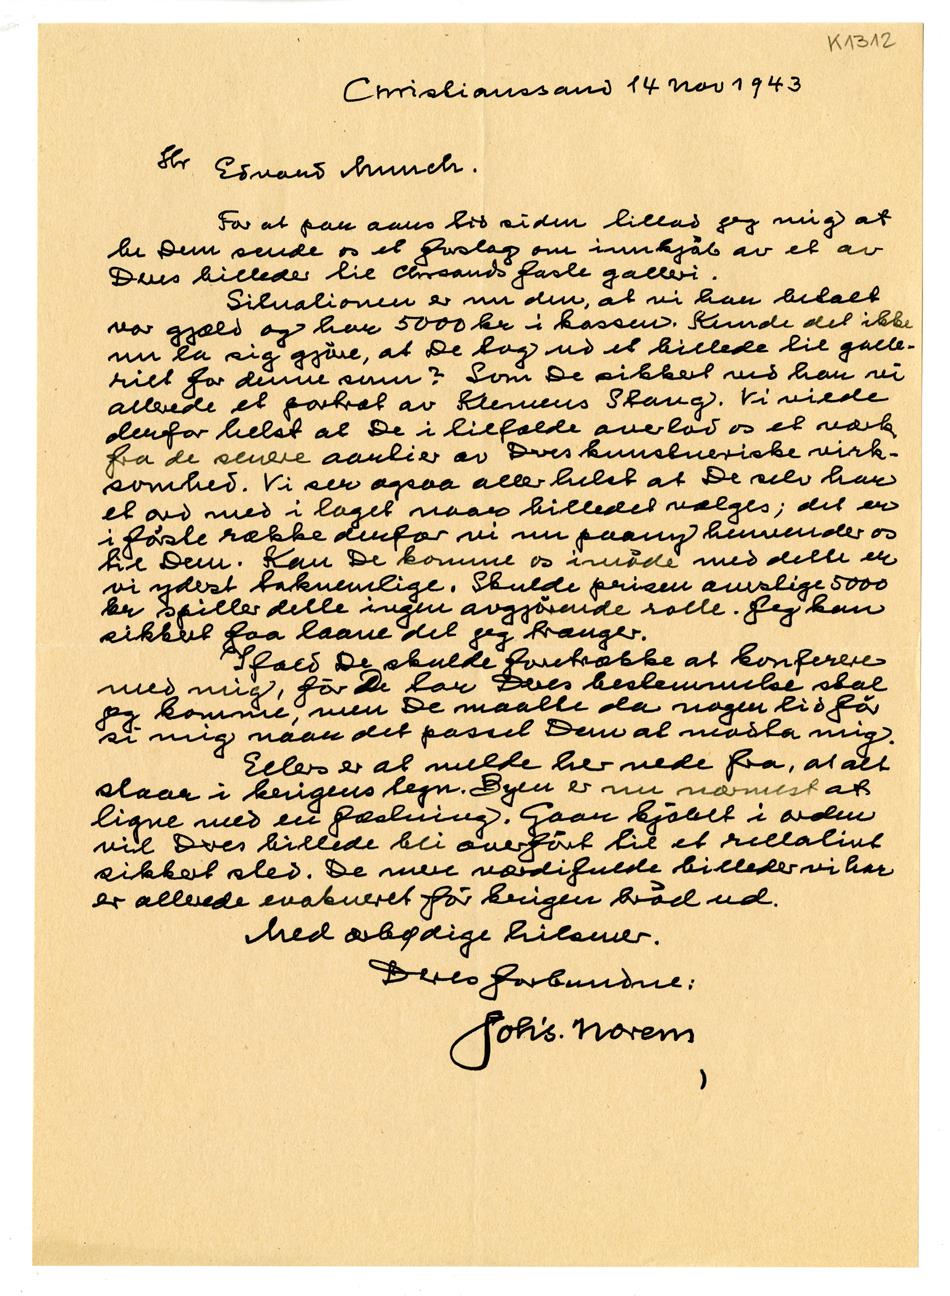 K1312
Christianssand 14 Nov 1943
Hr Edvard Munch.
For et par aars tid siden tillod jeg mig at
be Dem sende os et forslag om innkjöb av et av
Deres billeder til Chrsands faste galleri.
Situationen er nu den, at vi har betalt
vor gjæld og har 5000 kr i kassen. Kunde det ikke
nu la sig gjöre, at De tog ud et billede til galle-
riet for denne sum? Som De sikkert ved har vi
allerede et portræt av Klemens Stang. Vi vilde
derfor helst at De i tilfælde overlod os et værk
fra de senere aartier av Deres kunstneriske virk-
somhed. Vi ser ogsaa aller helst at De selv har
et ord med i laget naar billedet vælges; det er
i förste række derfor vi nu paany henvender os
til Dem. Kan De komme os imöde med dette er
vi yderst taknemlige. Skulde prisen overstige 5000
kr spiller dette ingen avgjörende rolle. Jeg kan
sikkert faa laane det jeg trænger.
Ifald De skulde foretrække at konferere
med mig, för De tar Deres bestemmelse skal
jeg komme, men De maatte da nogen tid för
si mig naar det passet Dem at modta mig.
Ellers er at melde her nede fra, at alt
staar i krigens tegn. Byen er nu nærmest at
ligne med en fæstning. Gaar kjöbet i orden
vil Deres billede bli overfört til et rellativt
sikkert sted. De mere værdifulde billeder vi har
er allerede evakueret för krigen bröd ud.
Med ærbødige hilsener.
Deres forbundne:
Johs. Norem